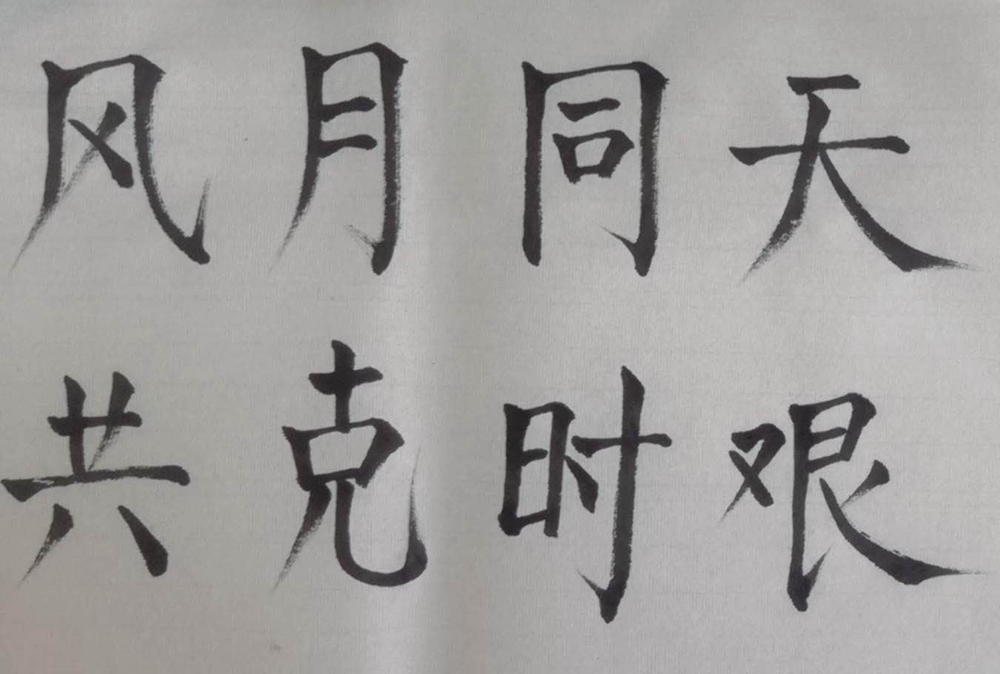 风月同天
共克时艰